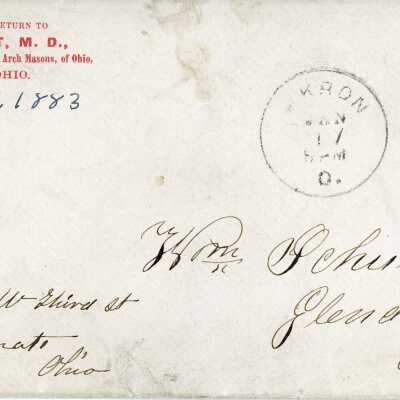 ETURN TO
T, M. D.,
Arch Masons, of Ohio,
OHIO.
1883
AKRON
JAN
17
PM
O.
Wm Schu
Glend
W Third st
nati
Ohio